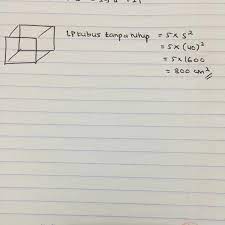 LP kubus tanpa tutup = 5 x s²
= 5 x (40)²
= 5 x 1600
= 800 cm²